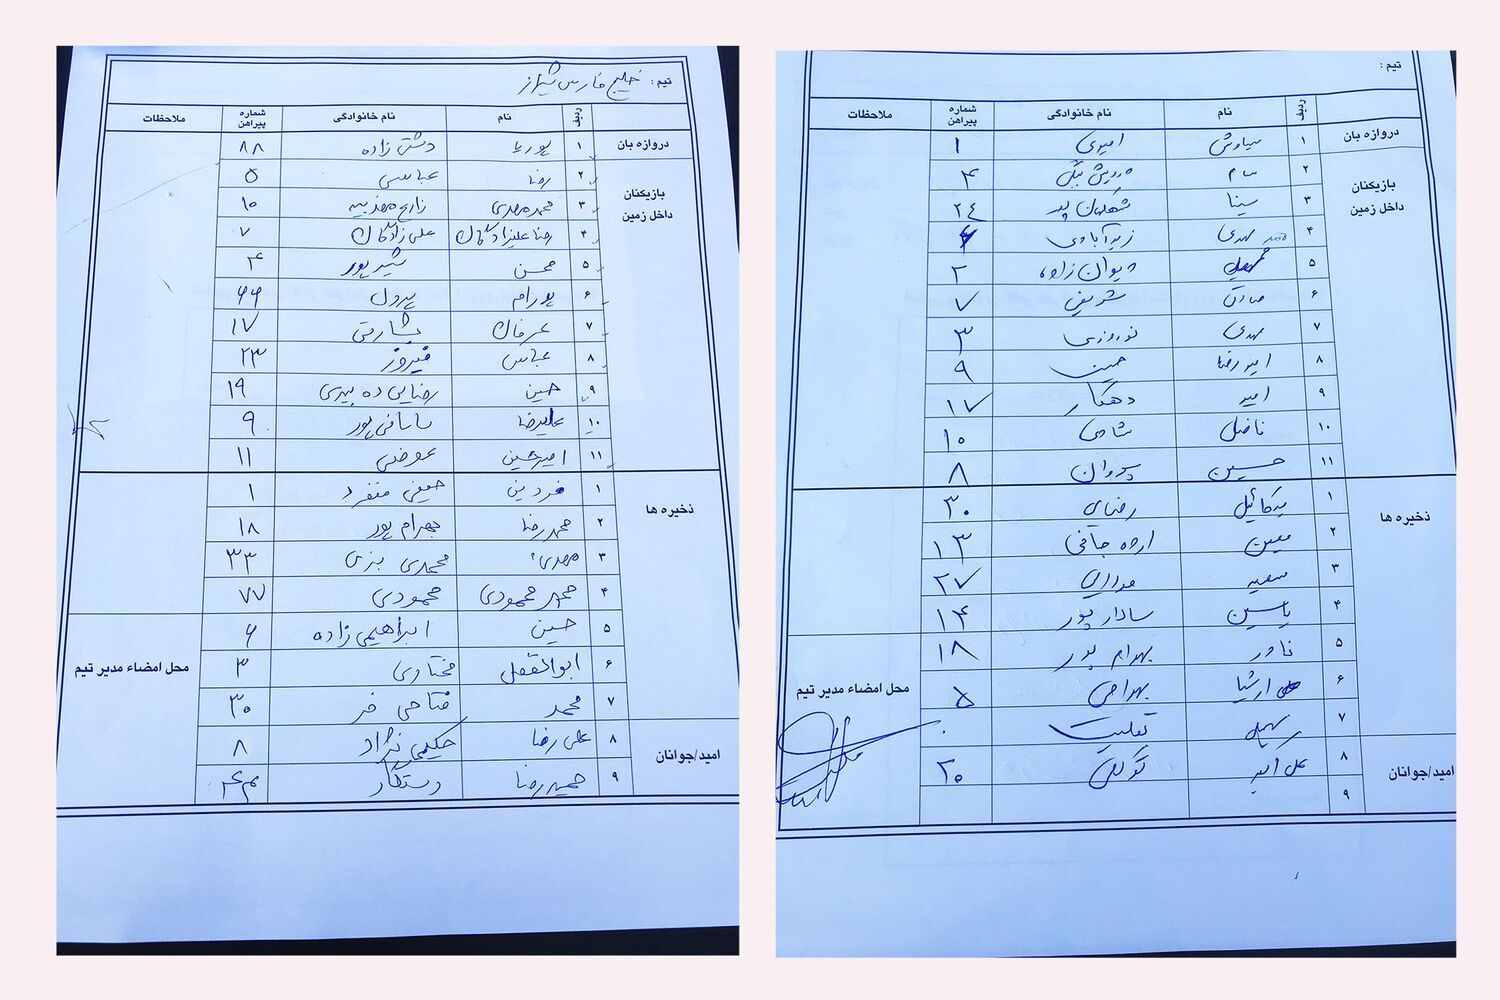 تیم : خلیج فارس شیراز
ردیف نام نام خانوادگی شماره پیراهن ملاحظات
دروازه بان ۱ پوریا دشتی زاده ۸۸
بازیکنان داخل زمین
۲ رضا عباسی ۵
۳ محمدمهدی زارع مهذبیه ۱۰
۴ رضا علیزادگان علی زادگان ۷
۵ محسن شیرپور ۴
۶ پورام پردل ۶۶
۷ عرفان بشارتی ۱۷
۸ عباس فیروز ۲۳
۹ حسین رضایی ده بیدی ۱۹
۱۰ علیرضا ساسانی پور ۹
۱۱ امیرحسین عوضی ۱۱
ذخیره ها
۱ فردین منفرد ۱
۲ محمدرضا بهرام پور ۱۸
۳ مهدی محمدی ۳۳
۴ محمودی محمودی ۷۷
۵ حسین ابراهیمی زاده ۶
محل امضاء مدیر تیم
۶ ابوالفضل مختاری ۳
۷ محمد فتاحی فر ۳۰
امید/جوانان
۸ علی رضا حکیمی نژاد ۸
۹ حمیدرضا رستگار
تیم :
ردیف نام نام خانوادگی شماره پیراهن ملاحظات
دروازه بان ۱ سیاوش امیدی ۱
بازیکنان داخل زمین
۲ سام درویش ۴
۳ سینا پور ۲۴
۴ مهدی زیدآبادی
۵ دیوان زاده ۲
۶ صادق شریفی ۷
۷ مهدی نوروزی ۳
۸ امیررضا ۹
۹ امید دهکار ۱۷
۱۰ فاضل ۱۰
۱۱ حسین پروان ۸
ذخیره ها
۱ میکائیل رضایی ۳۰
۲ معین ۱۳
۳ سعید مدادی ۲۷
۴ یاسین سادار پور ۱۴
۵ بهرام پور ۱۸
محل امضاء مدیر تیم
۶ ارشیا بهرامی ۵
۷ سهیل
امید/جوانان
۸ توکلی ۲۰
۹